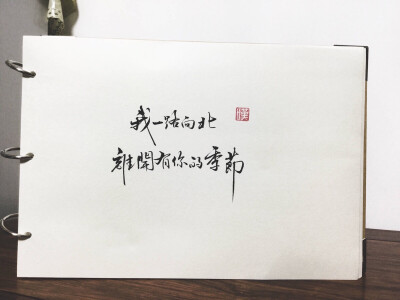 我一路向北
離開有你的季節